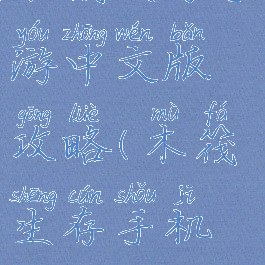 yóu zhōng wén bǎn
游中文版
gōng lüè mù fá
攻略(木筏
shēng cún shǒu jī
生存手机